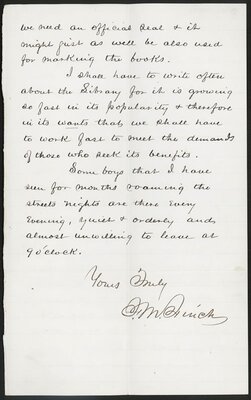 we need an official seal & it
might just as well be also used
for marking the books.
I shall have to write often
about the Library for it is growing
so fast in its popularity & therefore
in its wants that we shall have
to work fast to meet the demands
of those who seek its benefits.
Some boys that I have
seen for months roaming the
streets nights are there every
evening, quiet & orderly and
almost unwilling to leave at
9 o'clock.
Yours Truly
F. M. Finch